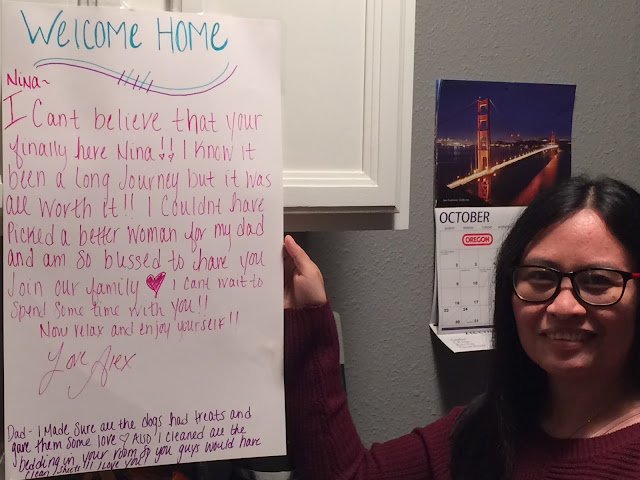 Welcome Home
Nina~
I Cant believe that your
finally here Nina!! I know it
been a long Journey but it was
all worth it!! I Couldnt have
Picked a better woman for my dad
and am so blessed to have you
Join our family ♥ I cant wait to
spend some time with you!!
Now relax and enjoy yourself!!
Love Alex
Dad- I Made Sure all the dogs had treats and
gave them some love ♡ Also I cleaned all the
bedding in your room so you guys would have
Clean sheets!! I Love you!
OCTOBER
OREGON